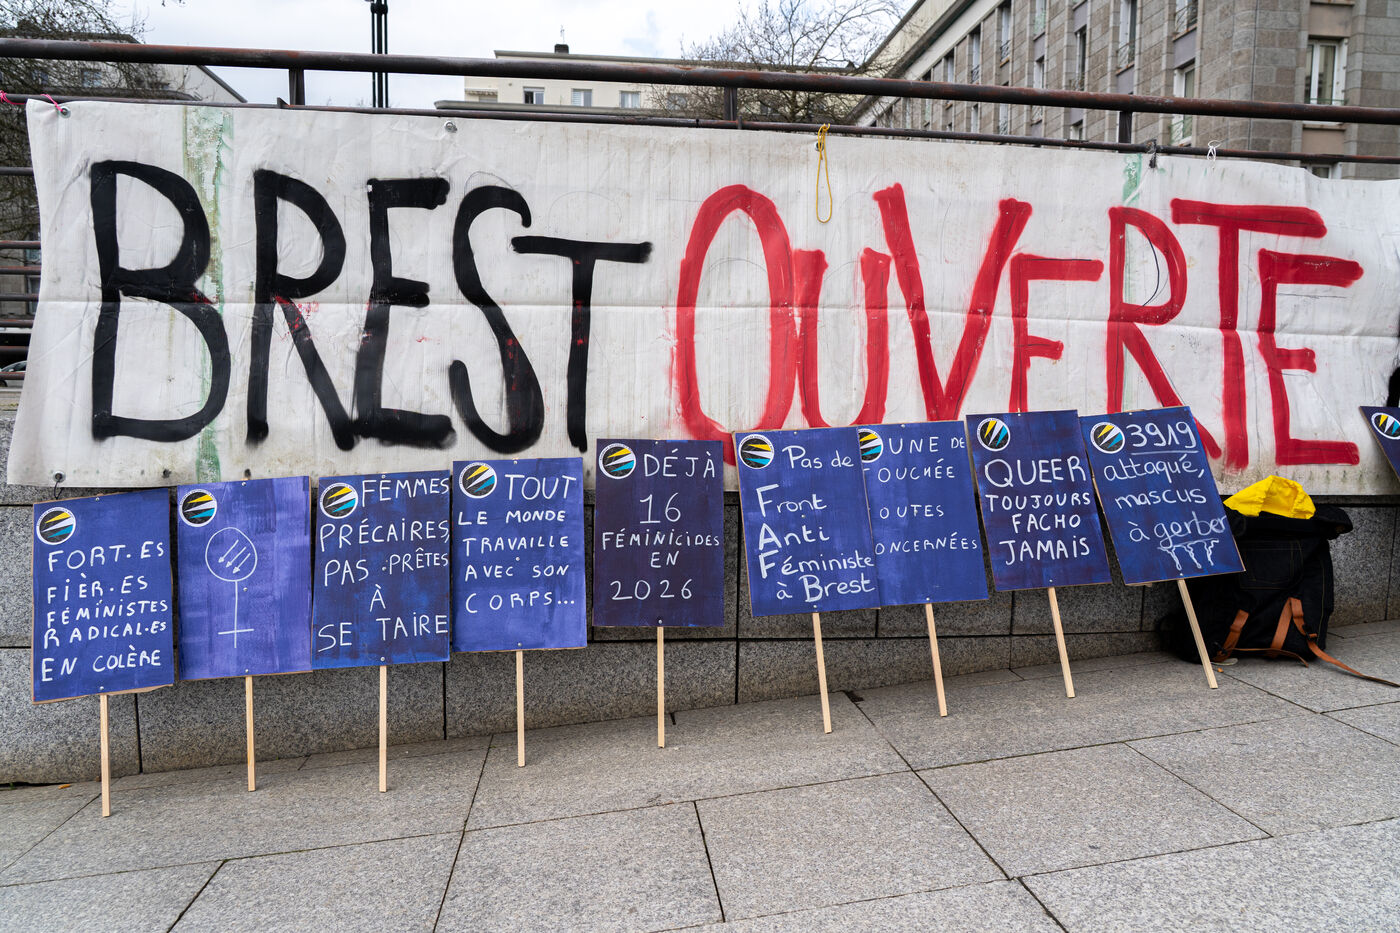 BREST OUVERTE
FORT·ES
FIÈR·ES
FÉMINISTES
RADICAL·ES
EN COLÈRE
FEMMES
PRÉCAIRES,
PAS PRÊTES
À
SE TAIRE
TOUT
LE MONDE
TRAVAILLE
AVEC SON
CORPS...
DÉJÀ
16
FÉMINICIDES
EN
2026
Pas de
Front
Anti
Féministe
à Brest
UNE DE
OUCHÉE
OUTES
ONCERNÉES
QUEER
TOUJOURS
FACHO
JAMAIS
3919
attaqué,
mascus
à gerber